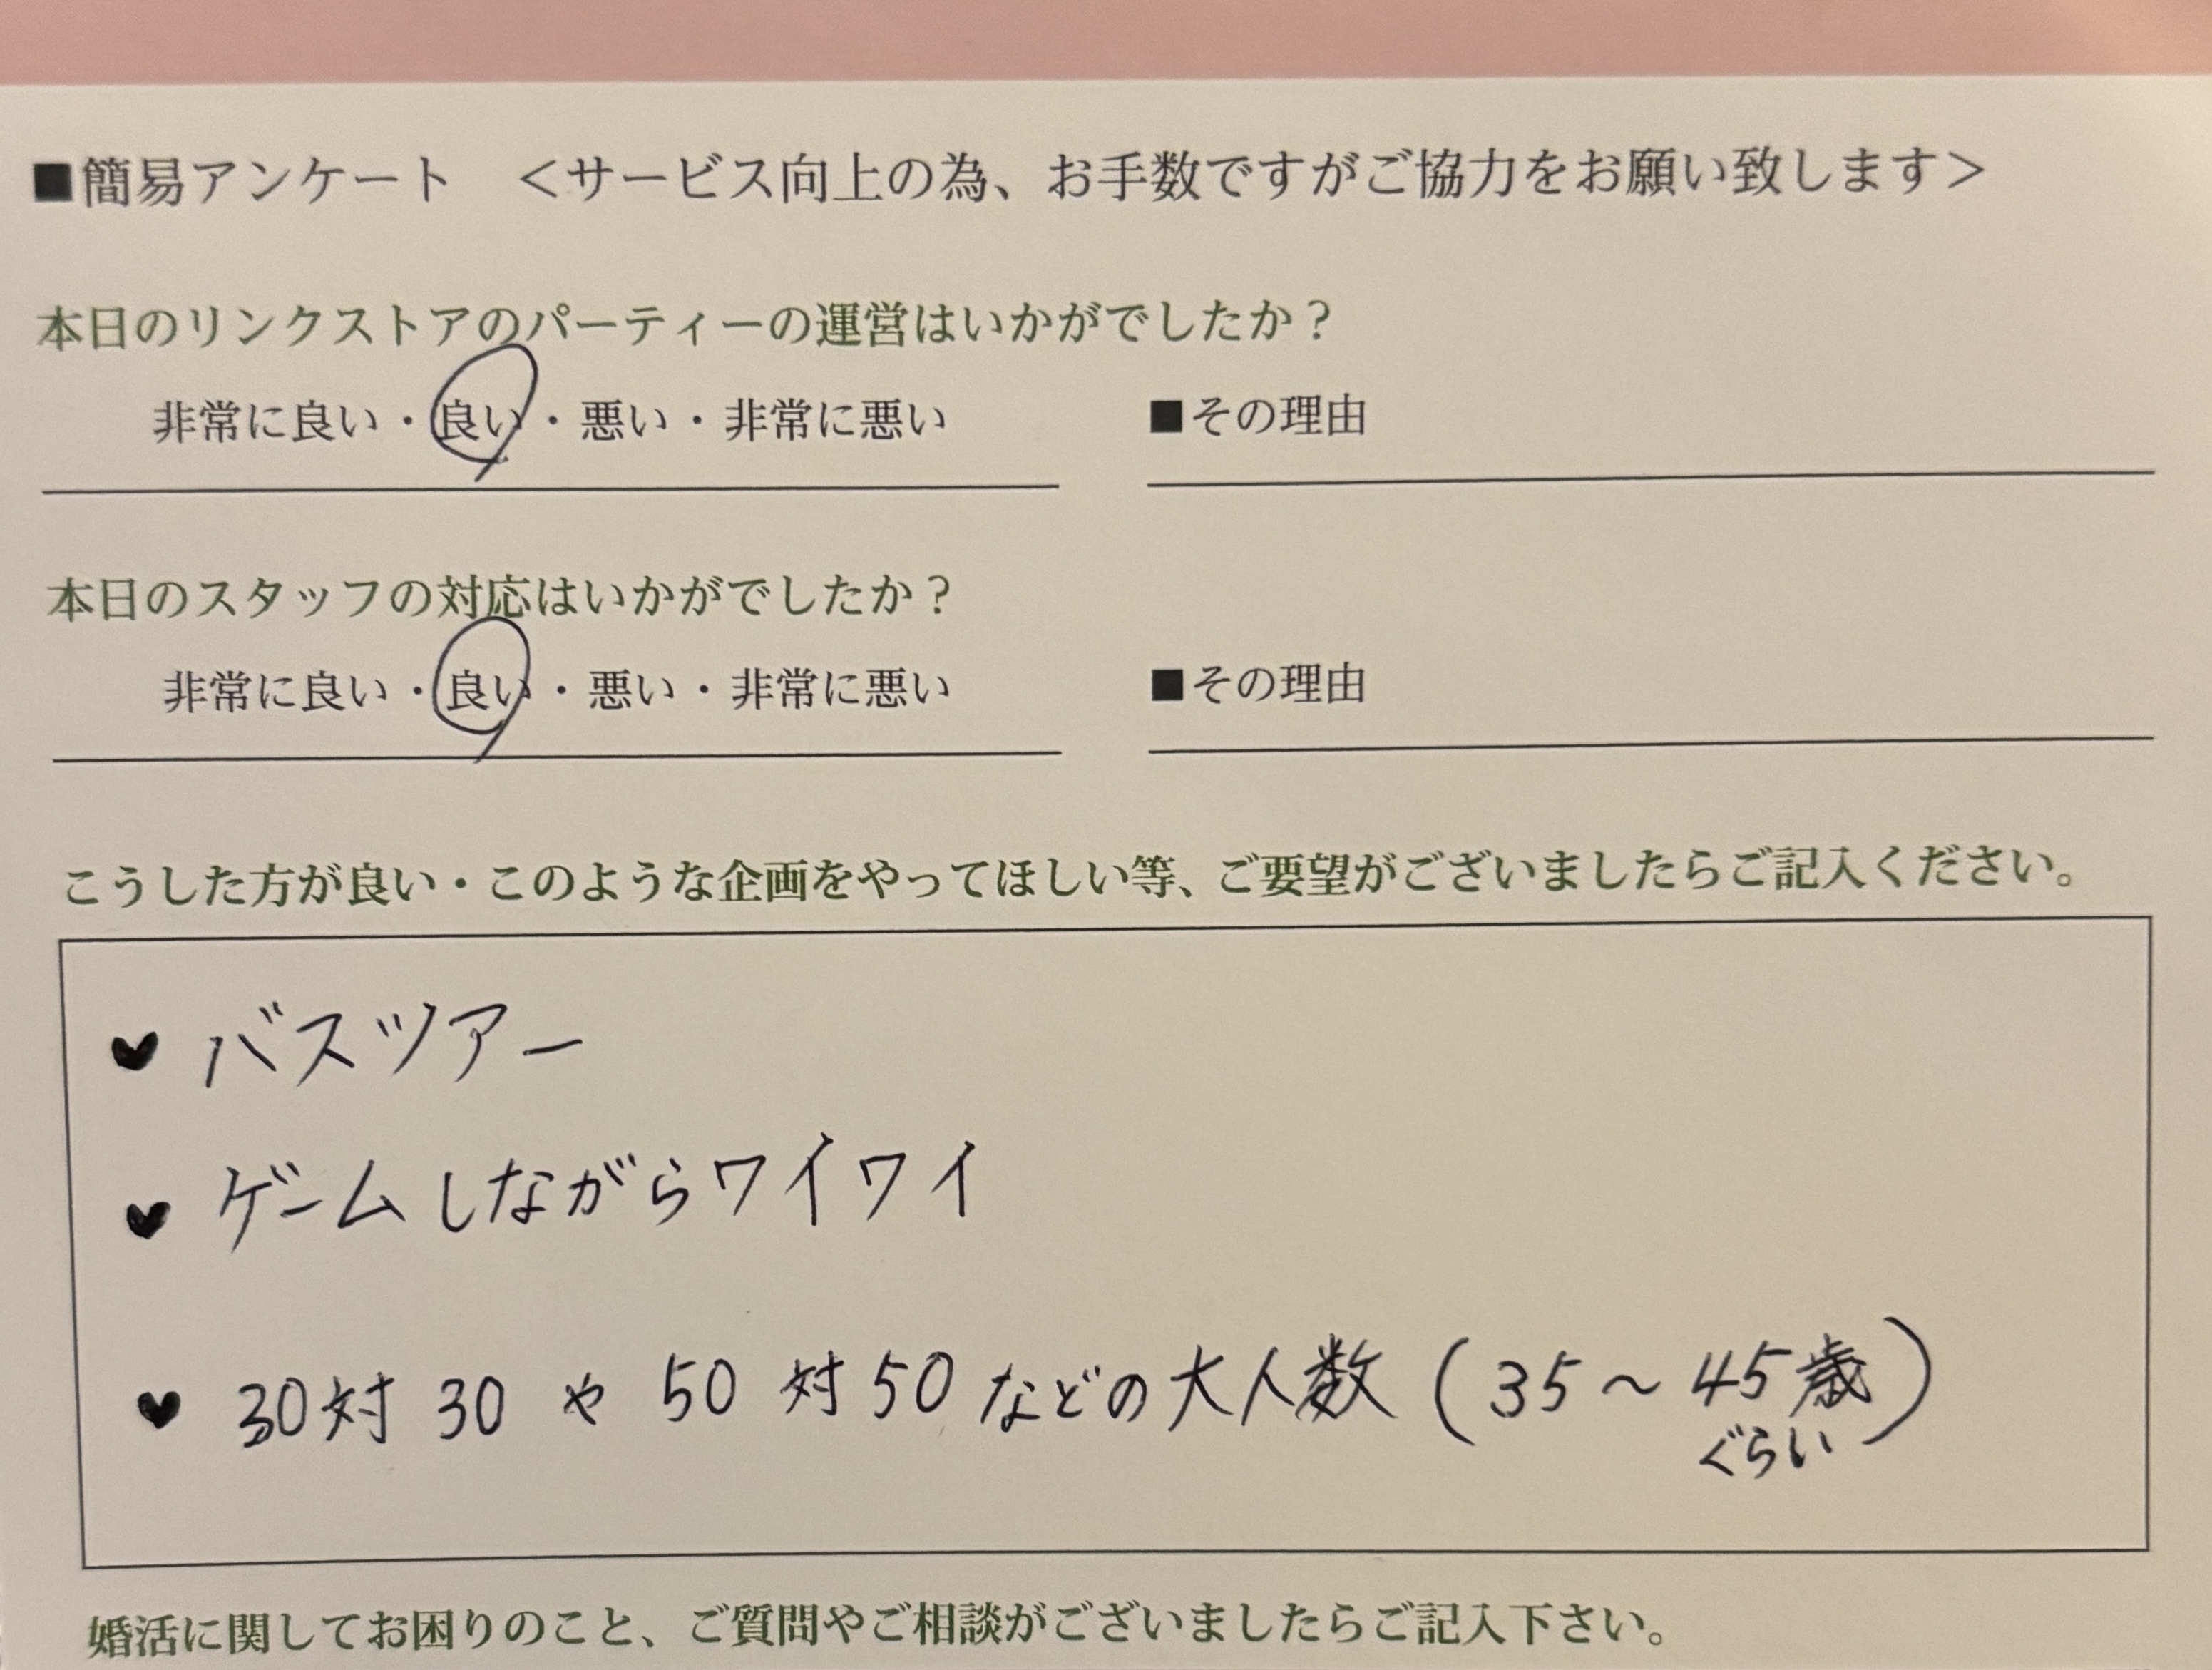 ■簡易アンケート ＜サービス向上の為、お手数ですがご協力をお願い致します＞
本日のリンクストアのパーティーの運営はいかがでしたか？
非常に良い・良い・悪い・非常に悪い ■その理由
本日のスタッフの対応はいかがでしたか？
非常に良い・良い・悪い・非常に悪い ■その理由
こうした方が良い・このような企画をやってほしい等、ご要望がございましたらご記入ください。
♥ バスツアー
♥ ゲームしながらワイワイ
♥ 30対30や50対50などの大人数(35～45歳)
ぐらい
婚活に関してお困りのこと、ご質問やご相談がございましたらご記入下さい。